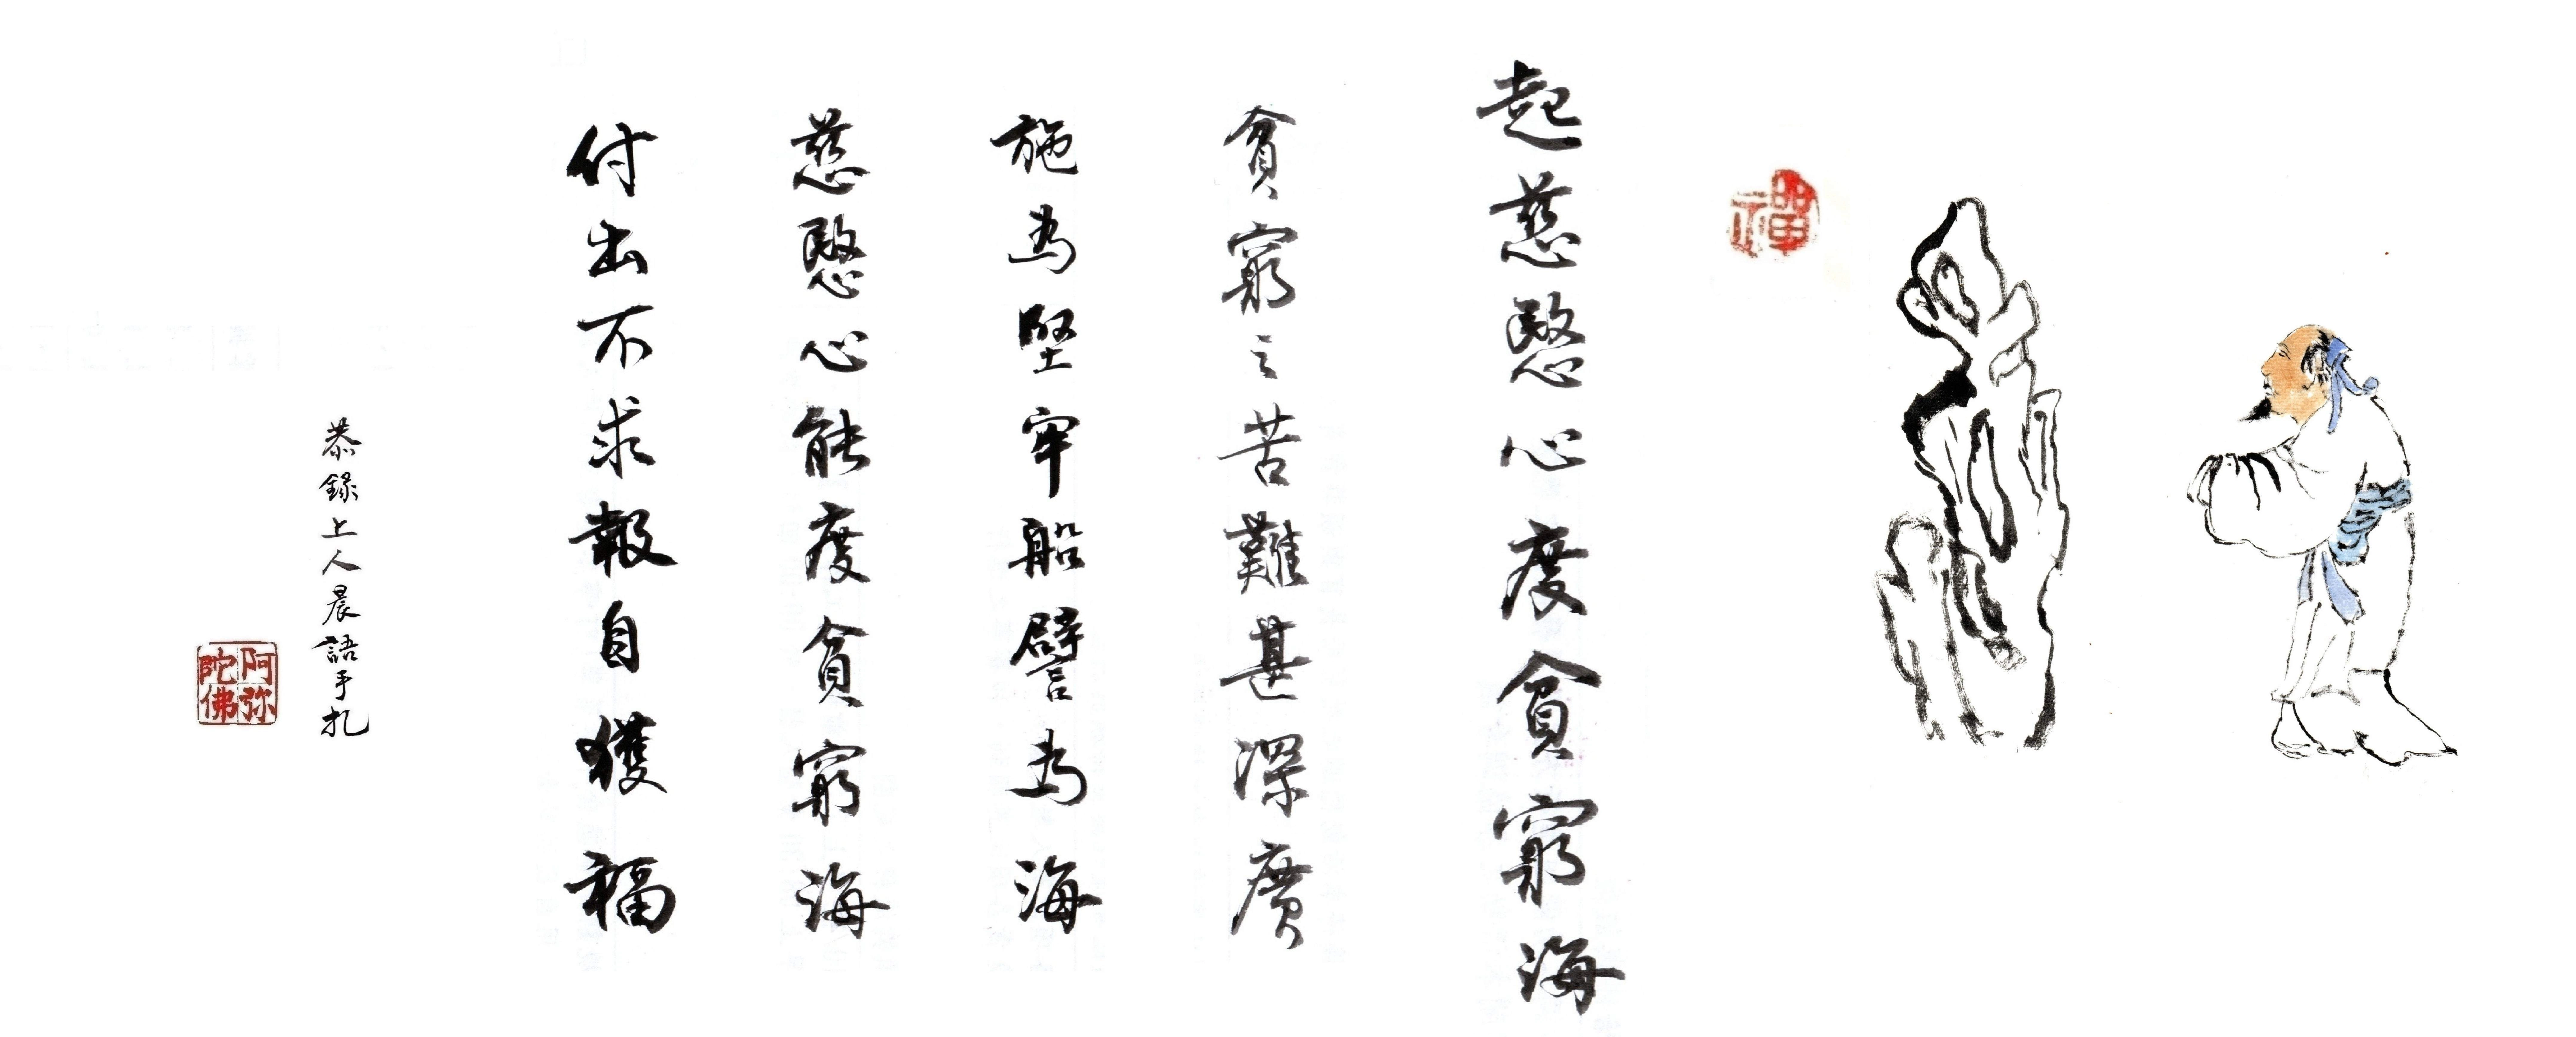 禪
起慈愍心度貪窮海
貪窮之苦難甚深廣
施為堅牢船譬為海
慈愍心能度貪窮海
付出不求報自獲福
恭錄上人晨語手札
阿弥陀佛